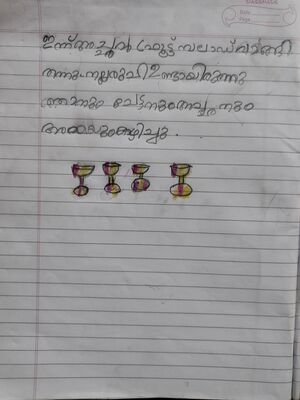 Date
Page
ഇന്ന് അച്ഛൻ ഫ്രൂട്ട് സലാഡ് വാങ്ങി
തന്നു. നല്ല രുചി ഉണ്ടായിരുന്നു
ഞാനും ചേട്ടനും അച്ഛനും
അമ്മയും കഴിച്ചു.